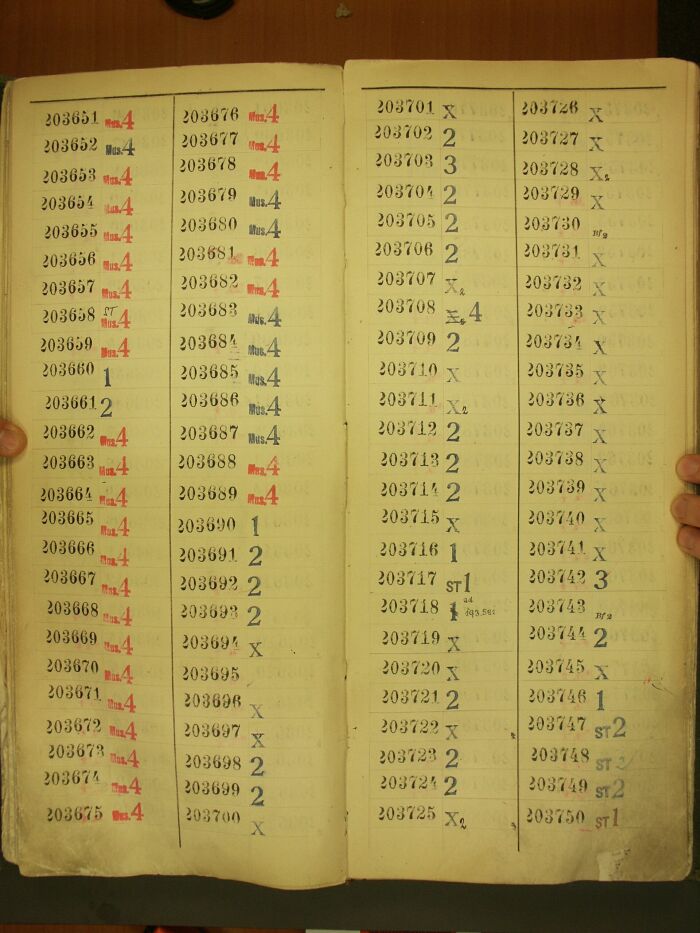 203651 Mus.4
203652 Mus.4
203653 Mus.4
203654 Mus.4
203655 Mus.4
203656 Mus.4
203657 Mus.4
203658 ST Mus.4
203659 Mus.4
203660 1
203661 2
203662 Mus.4
203663 Mus.4
203664 Mus.4
203665 Mus.4
203666 Mus.4
203667 Mus.4
203668 Mus.4
203669 Mus.4
203670 Mus.4
203671 Mus.4
203672 Mus.4
203673 Mus.4
203674 Mus.4
203675 Mus.4
203676 Mus.4
203677 Mus.4
203678 Mus.4
203679 Mus.4
203680 Mus.4
203681 Mus.4
203682 Mus.4
203683 Mus.4
203684 Mus.4
203685 Mus.4
203686 Mus.4
203687 Mus.4
203688 Mus.4
203689 Mus.4
203690 1
203691 2
203692 2
203693 2
203694 X
203695
203696 X
203697 X
203698 2
203699 2
203700 X
203701 X
203702 2
203703 3
203704 2
203705 2
203706 2
203707 X2
203708 4
203709 2
203710 X
203711 X2
203712 2
203713 2
203714 2
203715 X
203716 1
203717 ST1
203718 1
203719 X
203720 X
203721 2
203722 X
203723 2
203724 2
203725 X2
203726 X
203727 X
203728 X2
203729 X
203730 Bf2
203731 X
203732 X
203733 X
203734 X
203735 X
203736 X
203737 X
203738 X
203739 X
203740 X
203741 X
203742 3
203743 Bf2
203744 2
203745 X
203746 1
203747 ST2
203748 ST2
203749 ST2
203750 ST1